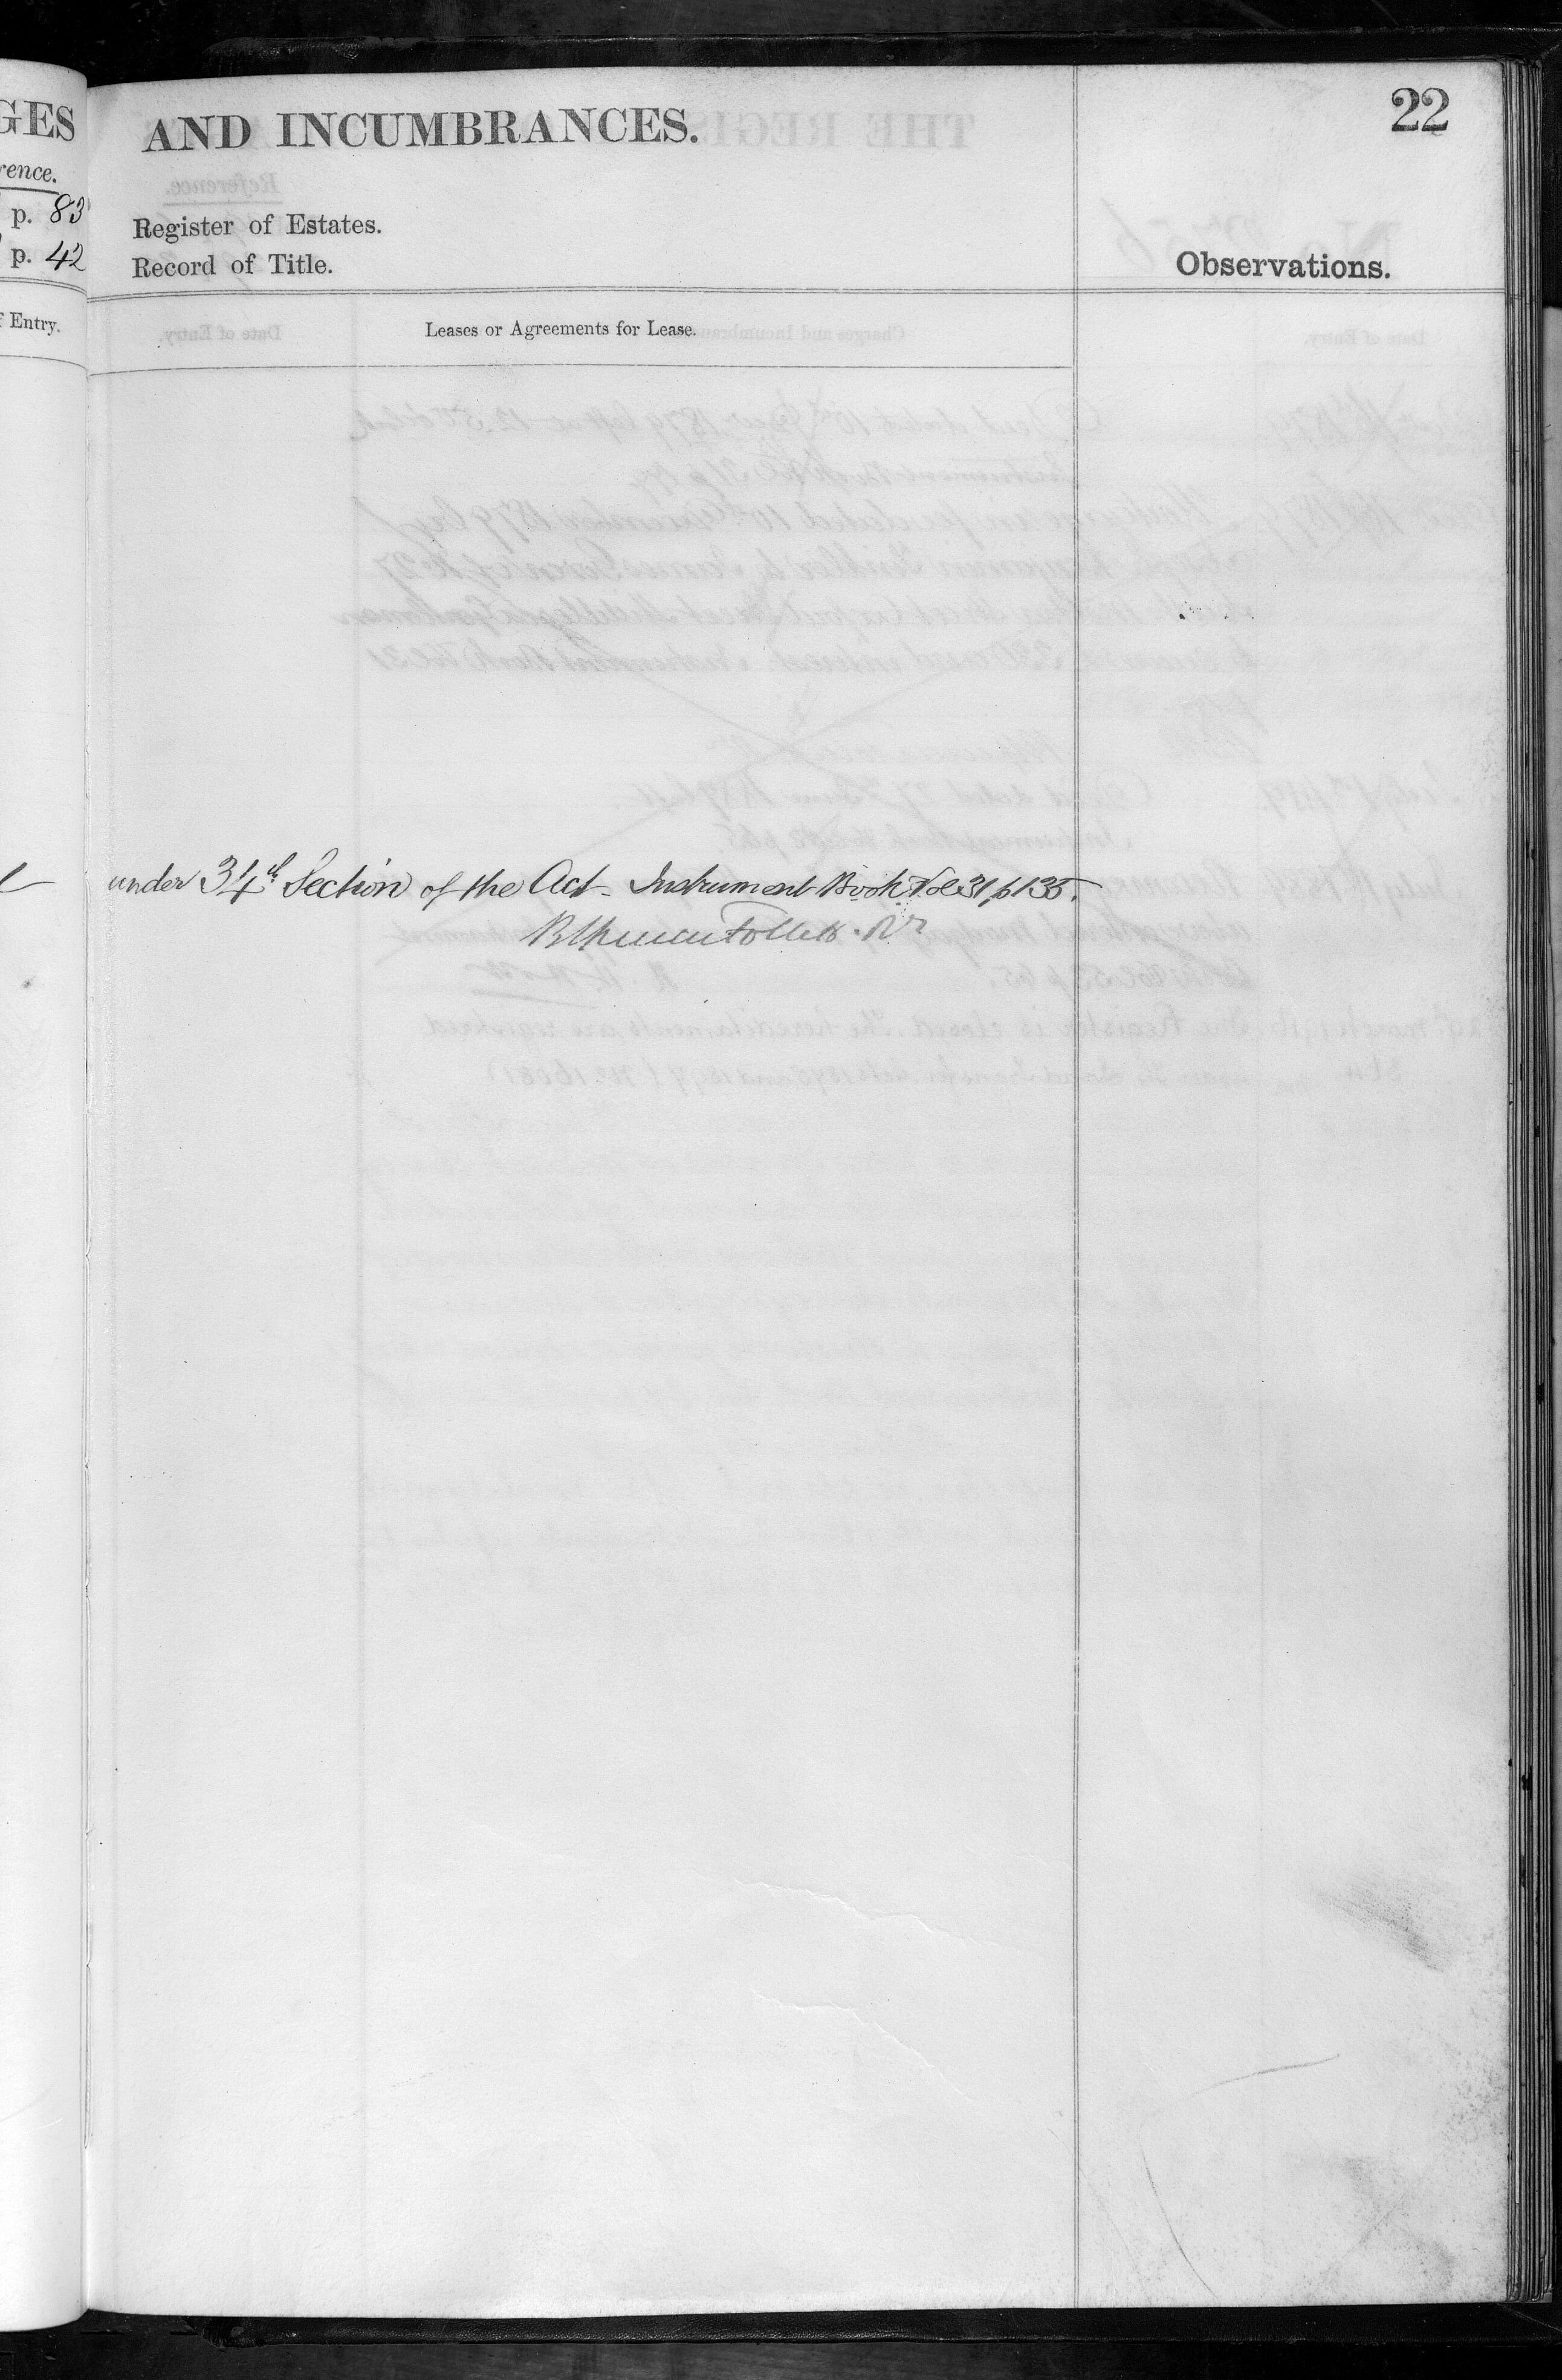 GES
rence.
p. 83
p. 42
f Entry.
AND INCUMBRANCES.
22
Register of Estates.
Record of Title.
Observations.
Leases or Agreements for Lease.
under 34th Section of the Act - Instrument Book Vol 31 p 135.
Follett